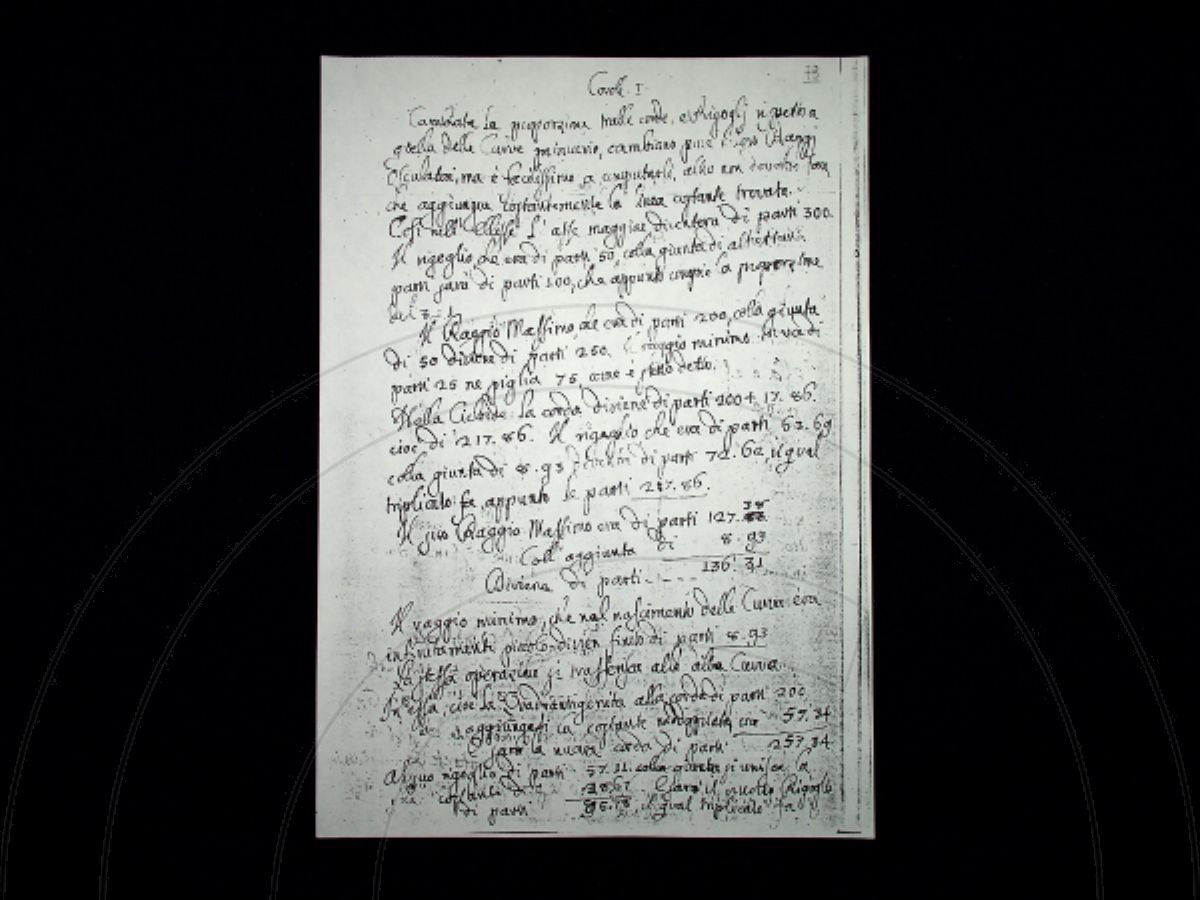 73
Coroll. I.
Cambiata la proporzione tralle corde, e i Rigogli rispetto a
quella delle Curve primarie, cambiano pure i loro Raggi
Osculatori, ma è facilissimo a computarli, altro non dovendo farsi
che aggiungere costantemente la linea costante trovata.
Così nell' Ellisse l' asse maggiore diventerà di parti 300.
Il rigoglio, che era di parti 50, colla giunta di altrettante
parti sarà di parti 100, che appunto compie la proporzione
del 3 - 1.
Il Raggio Massimo, che era di parti 200, colla giunta
di 50 diviene di parti 250. Il raggio minimo che era di
parti 25 ne piglia 75, come è stato detto.
Nella Cicloide la corda diviene di parti 200 + 17.86.
cioè di 217.86. Il rigoglio che era di parti 63.69
colla giunta di 8.93 diventa di parti 72.62, il qual
triplicato fa appunto le parti 217.86.
Il suo Raggio Massimo era di parti 127.38
Coll' aggiunta di 8.93
Diviene di parti - - - - 136.31
Il raggio minimo, che nel nascimento della Curva era
infinitamente piccolo divien finito di parti 8.93
La stessa operazione si trasferisca alle altre Curve.
In essa, cioè la alla corda di parti 200
aggiungasi la costante raddoppiata, cioè 57.34
E sarà la nuova corda di parti 257.34
Al suo rigoglio di parti 57.11. colla giunta si unisca la
costante di 28.67. E sarà il nuovo Rigoglio
di parti 85.78, il qual triplicato fa